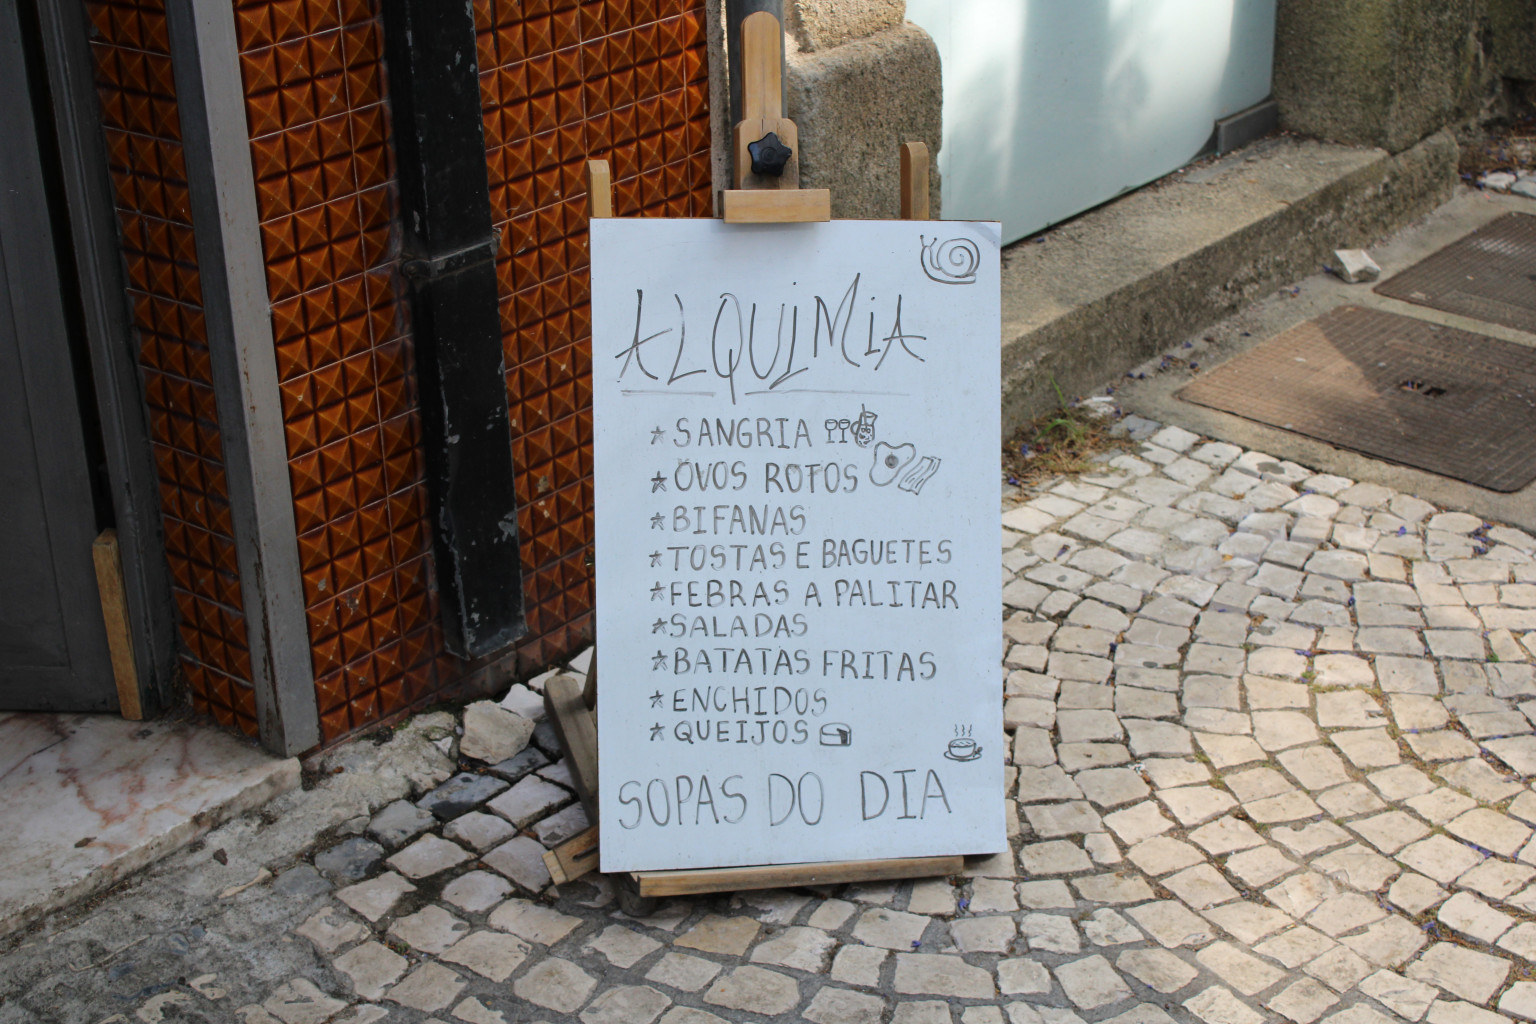 ALQUiMiA
* SANGRIA
* OVOS ROTOS
* BIFANAS
* TOSTAS E BAGUETES
* FEBRAS A PALITAR
* SALADAS
* BATATAS FRITAS
* ENCHIDOS
* QUEIJOS
SOPAS DO DIA